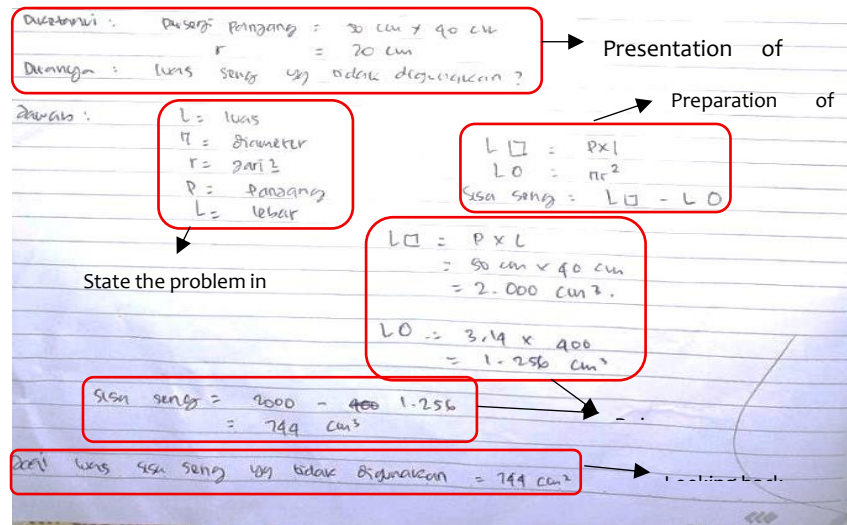 Diketahui : Persegi panjang = 50 cm x 40 cm
r = 20 cm
Ditanya : luas seng yg tidak digunakan ?
Presentation of
Preparation of
Jawab :
L = luas
π = diameter
r = jari²
P = panjang
L = lebar
L □ = P x l
L O = πr²
Sisa seng = L □ - L O
State the problem in
L □ = P x L
= 50 cm x 40 cm
= 2.000 cm².
L O = 3,14 x 400
= 1.256 cm³
Sisa seng = 2000 - 400 1.256
= 744 cm³
Jadi luas sisa seng yg tidak digunakan = 744 cm²
Looking back